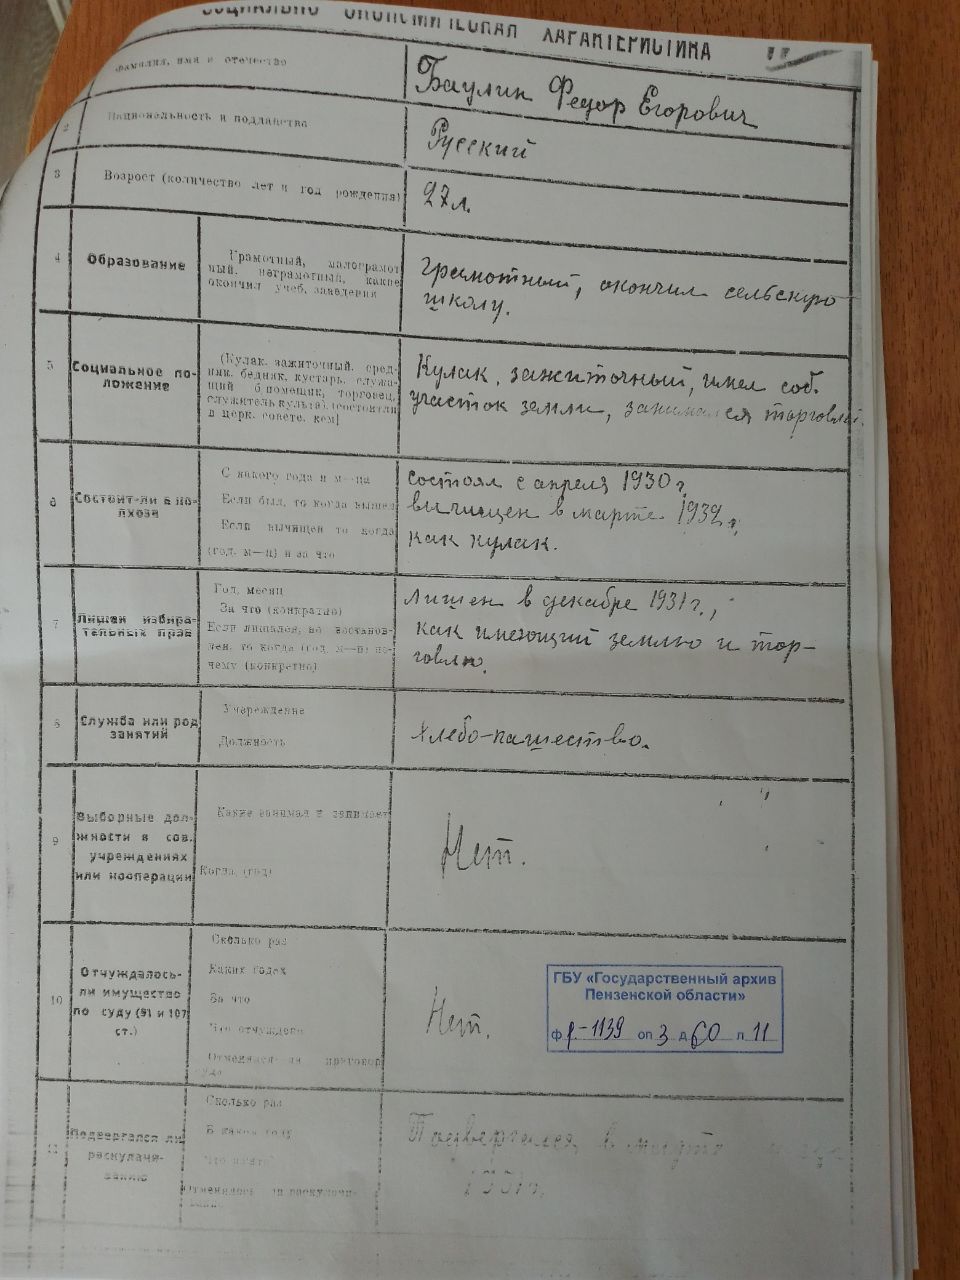 СОЦИАЛЬНО ЭКОНОМИЧЕСКАЯ ХАРАКТЕРИСТИКА
Фамилия, имя и отчество
Баулин Федор Егорович
2
Национальность и подданство
Русский
3
Возраст (количество лет и год рождения)
27 л.
4
Образование
Грамотный, малограмот
ный, неграмотный, какие
окончил учеб. заведения
Грамотный, окончил сельскую
школу.
5
Социальное по-
ложение
(Кулак, зажиточный, серед-
няк, бедняк, кустарь, служа-
щий б.помещик, торговец,
служитель культа), [состоял ли
в церк. совете, кем]
Кулак, зажиточный, имел соб.
участок земли, занимался торговлей.
6
Состоит-ли в ко-
лхозе
С какого года и м—ца
Если был, то когда вышел
Если вычищен то когда
(год, м—ц) и за что
Состоял с апреля 1930 г.
вычищен в марте 1932 г.
как кулак.
7
Лишен избира-
тельных прав
Год, месяц
За что (конкретно)
Если лишался, но восстанов-
лен, то когда (год, м—ц) по-
чему (конкретно)
Лишен в декабре 1931 г.,
как имеющий землю и тор-
говлю.
8
Служба или род
занятий
Учреждение
Должность
Хлебо-пашество.
9
Выборные дол-
жности в сов.
учреждениях
или кооперации
Какие занимал и занимает
Когда (год)
Нет.
10
Отчуждалось-
ли имущество
по суду (61 и 107
ст.)
Сколько раз
Каких годах
За что
Что отчуждено
Отменялся ли приговор
суда
Нет.
ГБУ «Государственный архив
Пензенской области»
ф р.-1139 оп 3 д 60 л 11
11
Подвергался ли
раскулачи-
ванию
Сколько раз
В каком году
Что изъято
Отменялось ли раскулачи-
вание
Подвергался в
1931 г.